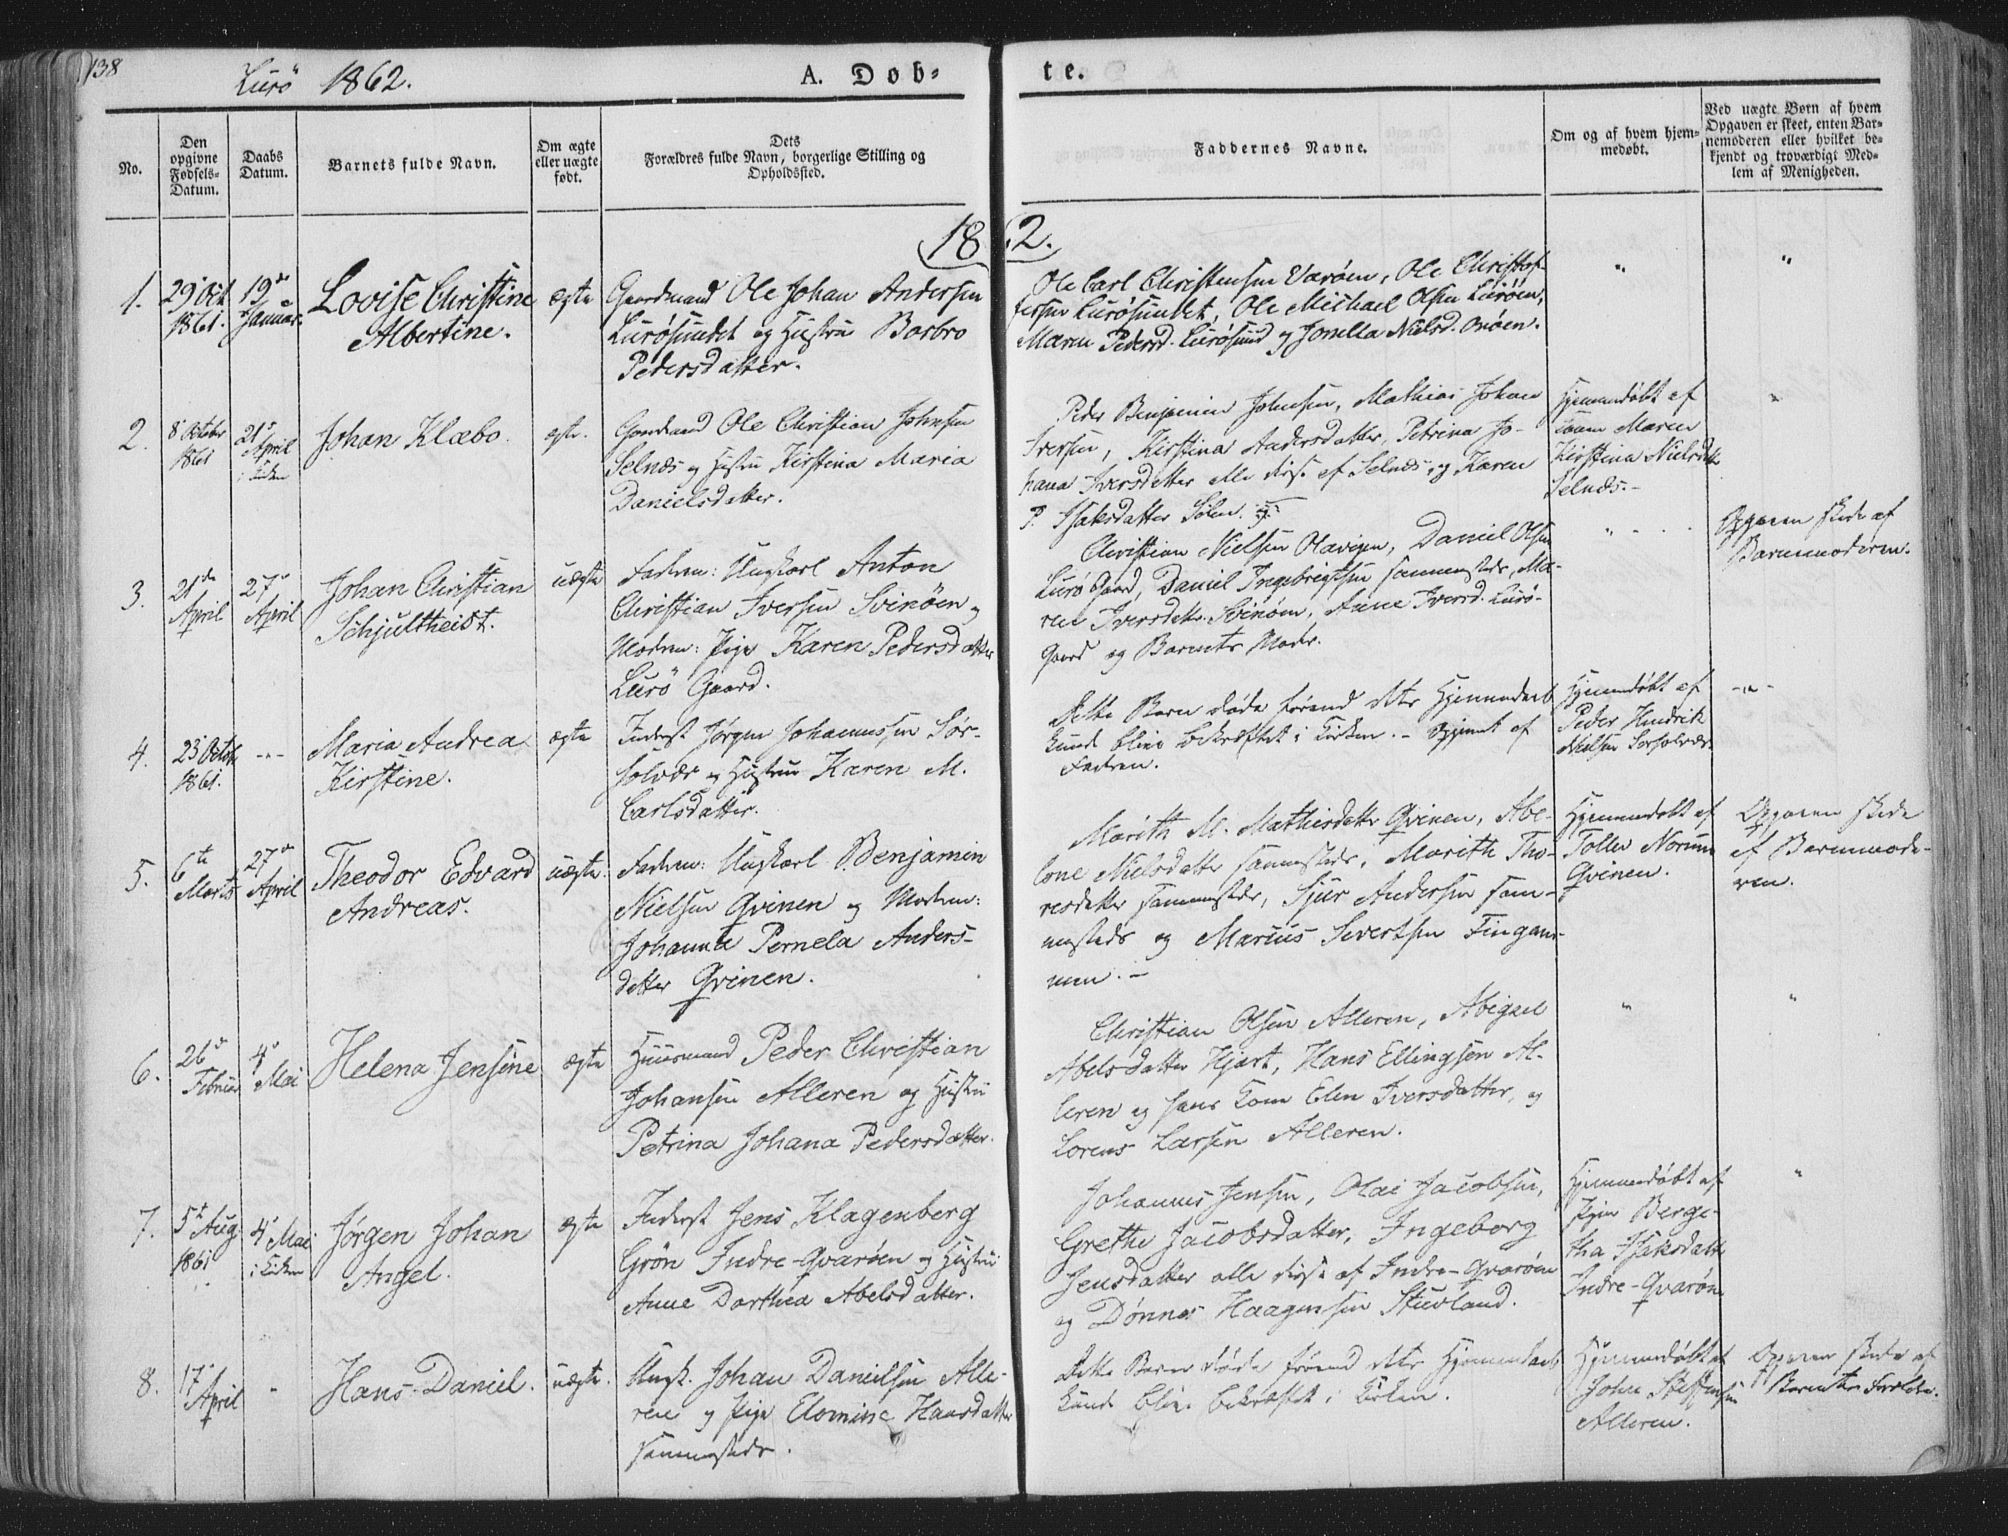 138
Lurö 1862.
A. Døb-
te.
No.
Den opgivne Fødsels-Datum.
Daabs Datum.
Barnets fulde Navn.
Om ægte eller uægte født.
Dets Forældres fulde Navn, borgerlige Stilling og Opholdssted.
Faddernes Navne.
Om og af hvem hjem-medøbt.
Ved uægte Børn af hvem Opgaven er skeet, enten Bar-nemoderen eller hvilket be-kjendt og troværdigt Med-lem af Menigheden.
1862.
1.
29 Oct
1861.
19de
Januar.
Lovise Christine
Albertine.
ægte
Gaardmand Ole Johan Andersen
Lurösundet og Hustru Barbro
Pedersdatter.
Ole Carl Christensen Varöen, Ole Christof-
fersen Lurösundet, Ole Michael Olsen Luröen,
Maren Pedersd. Lurösund og Jonella Nielsd. Onöen.
"
"
2.
8 October
1861
21de
April
i Kirken
Johan Klæbo.
ægte.
Gaardmand Ole Christian Johnsen
Selnæs og Hustru Kirstina Maria
Danielsdatter.
Peder Benjamin Johnsen, Mathias Johan
Iversen, Kirstina Andersdatter, Petrina Jo-
hana Iversdatter alle disse af Selnæs, og Karen
P. Isaksdatter
Hjemmedöbt af
Konen Maren
Kirstina Nielsdtr
Selnæs.-
"
3.
21de
April
27de
April
Johan Christian
Schjultheist.
uægte
Fadren: Ungkarl Anton
Christian Iversen Svinöen og
Modren: Pige Karen Pedersdatter
Lurö Gaard.
Christian Nielsen Olavigen, Daniel Olsen
Lurö Gaard, Daniel Ingebrigtsen sammesteds, Ma-
ren Iversdatter Svinöen, Anne Iversd. Lurö-
Gaard og Barnets Moder.
"
Opgaven skede af
Barnemoderen.
4.
23 Octob
1861.
-"-
Maria Andrea
Kirstine.
ægte
Inderst Jörgen Johannesen Sör-
solvær og Hustru Karen M.
Carlsdatter.
Dette Barn döde förend dets Hjemmedaab
kunde blive bekræftet i Kirken.- Opgivet af
Fadren.
Hjemmedöbt af
Peder Hendrik
Nielsen Sörsolvær
-"-
5.
6te
Marts
27de
April
Theodor Edvard
Andreas.
uægte.
Fadren: Ungkarl P. Benjamin
Nielsen Qvinen og Modren:
Johanna Pernela Anders-
datter Qvinen.
Marith M. Mathisdatter Qvinen, Abe-
lone Nielsdatter sammesteds, Marith Tho-
resdatter sammesteds, Sjur Andersen sam-
mesteds og Marius Sivertsen
Hjemmedöbt af
Tollev
Qvinen.
Opgaven skede
af Barnemode-
ren.
6.
26de
Februar
4de
Mai
Helena Jensine
ægte
Huusmand Peder Christian
Johansen Alleren og Hustru
Petrina Johana Pedersdatter.
Christian Olsen Alleren, Abigael
Abelsdatter Hjart, Hans Ellingsen Al-
leren og hans Kone Elen Iversdatter, og
Lorens Larsen Alleren.
"
"
7.
5te Aug
1861
4de Mai
i Kirken
Jörgen Johan
Angel.
ægte
Inderst Jens Klagenberg
Grön Indre-Qvaröen og Hustru
Anne Dorthea Abelsdatter.
Johannes Jensen, Olai Jacobsen,
Grethe Jacobsdatter, Ingeborg
Jensdatter alle disse af Indre-Qvaröen
og Dönnes Haagensen Stuvland.
Hjemmedöbt af
Pigen Berge-
tha Isaksdattr
Indre-Qvarön
"
8.
17de
April
"
Hans Daniel.
uægte.
Ungk. Johan Danielsen Alle-
ren og Pige Elomine Hansdatter
sammesteds.
Dette Barn döde förend dets Hjemmedaab
kunde blive bekræftet i Kirken.
Hjemmedöbt af
John Steffensen
Alleren.
Opgaven skede af
Barnets Forældre.